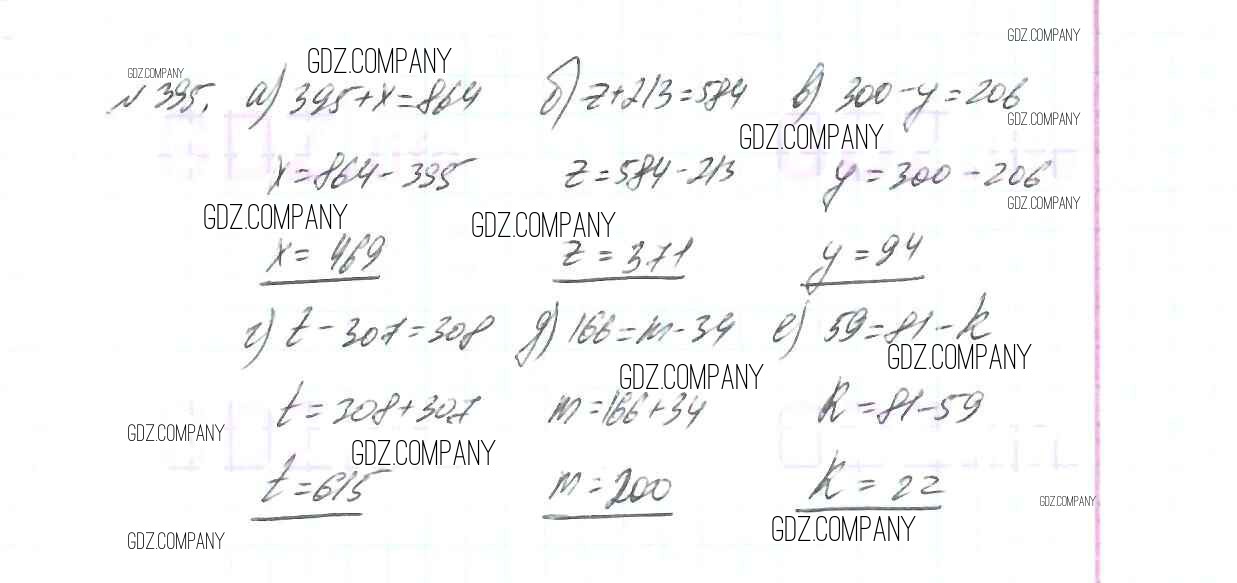 GDZ.COMPANY
GDZ.COMPANY GDZ.COMPANY
№ 395. а) 395+x=864 б) z+213=584 в) 300-y=206
GDZ.COMPANY GDZ.COMPANY
x=864-395 z=584-213 y=300-206
GDZ.COMPANY GDZ.COMPANY GDZ.COMPANY
x=469 z=371 y=94
г) t-307=308 д) 166=m-34 е) 59=81-k
GDZ.COMPANY GDZ.COMPANY
t=308+307 m=166+34 k=81-59
GDZ.COMPANY GDZ.COMPANY
t=615 m=200 k=22
GDZ.COMPANY
GDZ.COMPANY GDZ.COMPANY